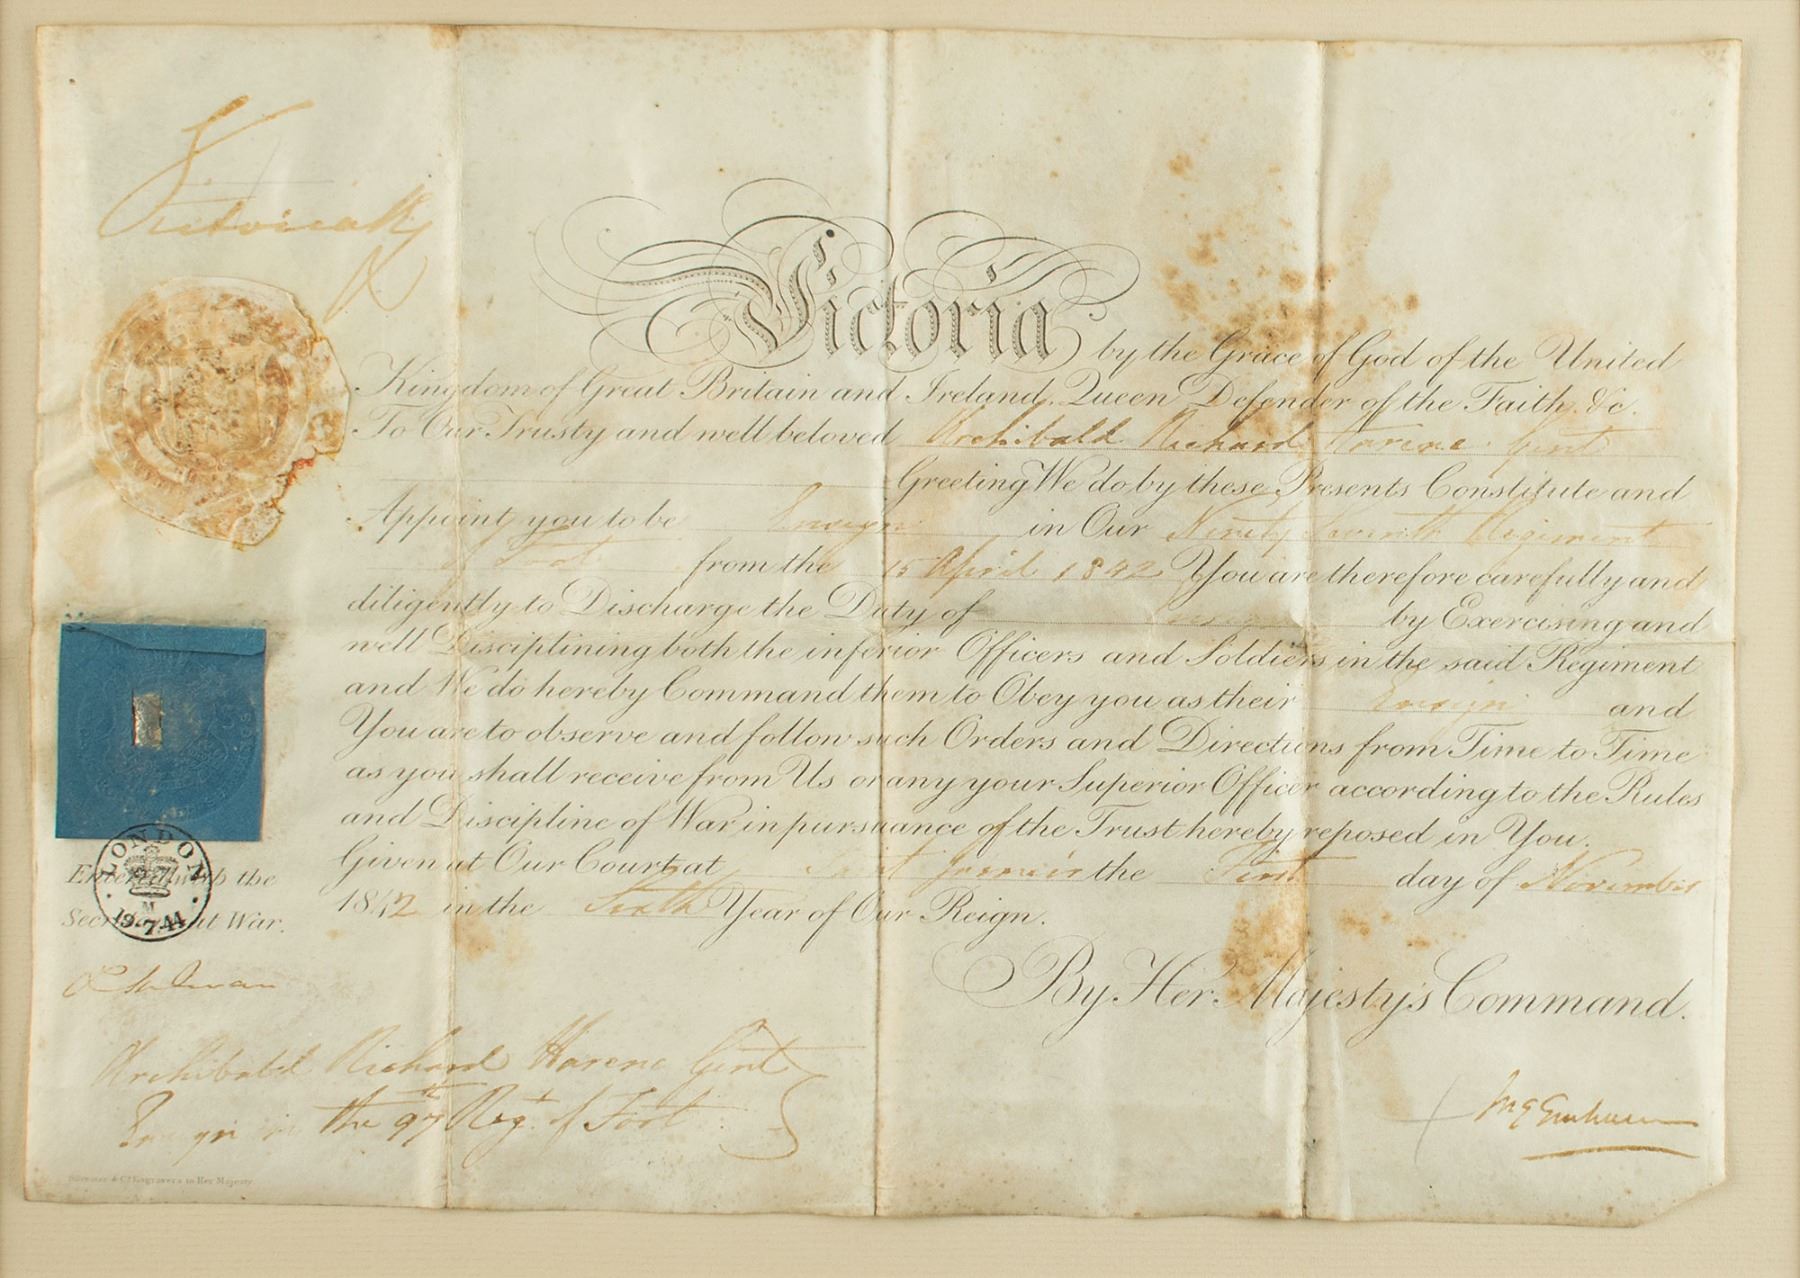 Victoria R
Victoria by the Grace of God of the United
Kingdom of Great Britain and Ireland. Queen Defender of the Faith &c.
To Our Trusty and well beloved Archibald Richard Harene Gent
Greeting We do by these Presents Constitute and
Appoint you to be Ensign in Our Ninety Seventh Regiment
of Foot from the 15 April 1842 You are therefore carefully and
diligently to Discharge the Duty of Ensign by Exercising and
well Disciplining both the inferior Officers and Soldiers in the said Regiment
and We do hereby Command them to Obey you as their Ensign and
You are to observe and follow such Orders and Directions from Time to Time
as you shall receive from Us or any your Superior Officer according to the Rules
and Discipline of War in pursuance of the Trust hereby reposed in You.
Given at Our Court at Saint James's the First day of November
1842 in the Sixth Year of Our Reign.
By Her Majesty's Command.
LONDON
M
19.7.44
Entered with the
Secretary at War.
Archibald Richard Harene Gent
Ensign in the 97th Regt of Foot
& Co. Engravers to Her Majesty